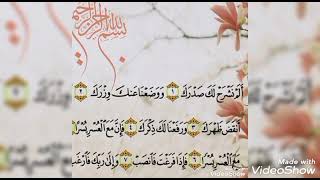 بسم الله الرحمن الرحيم
أَلَمْ نَشْرَحْ لَكَ صَدْرَكَ ١ وَوَضَعْنَا عَنكَ وِزْرَكَ ٢
أَنقَضَ ظَهْرَكَ ٣ وَرَفَعْنَا لَكَ ذِكْرَكَ ٤ فَإِنَّ مَعَ الْعُسْرِ يُسْرًا
مَعَ الْعُسْرِ يُسْرًا ٦ فَإِذَا فَرَغْتَ فَانصَبْ ٧ وَإِلَىٰ رَبِّكَ فَارْغَب
Made with
VideoShow